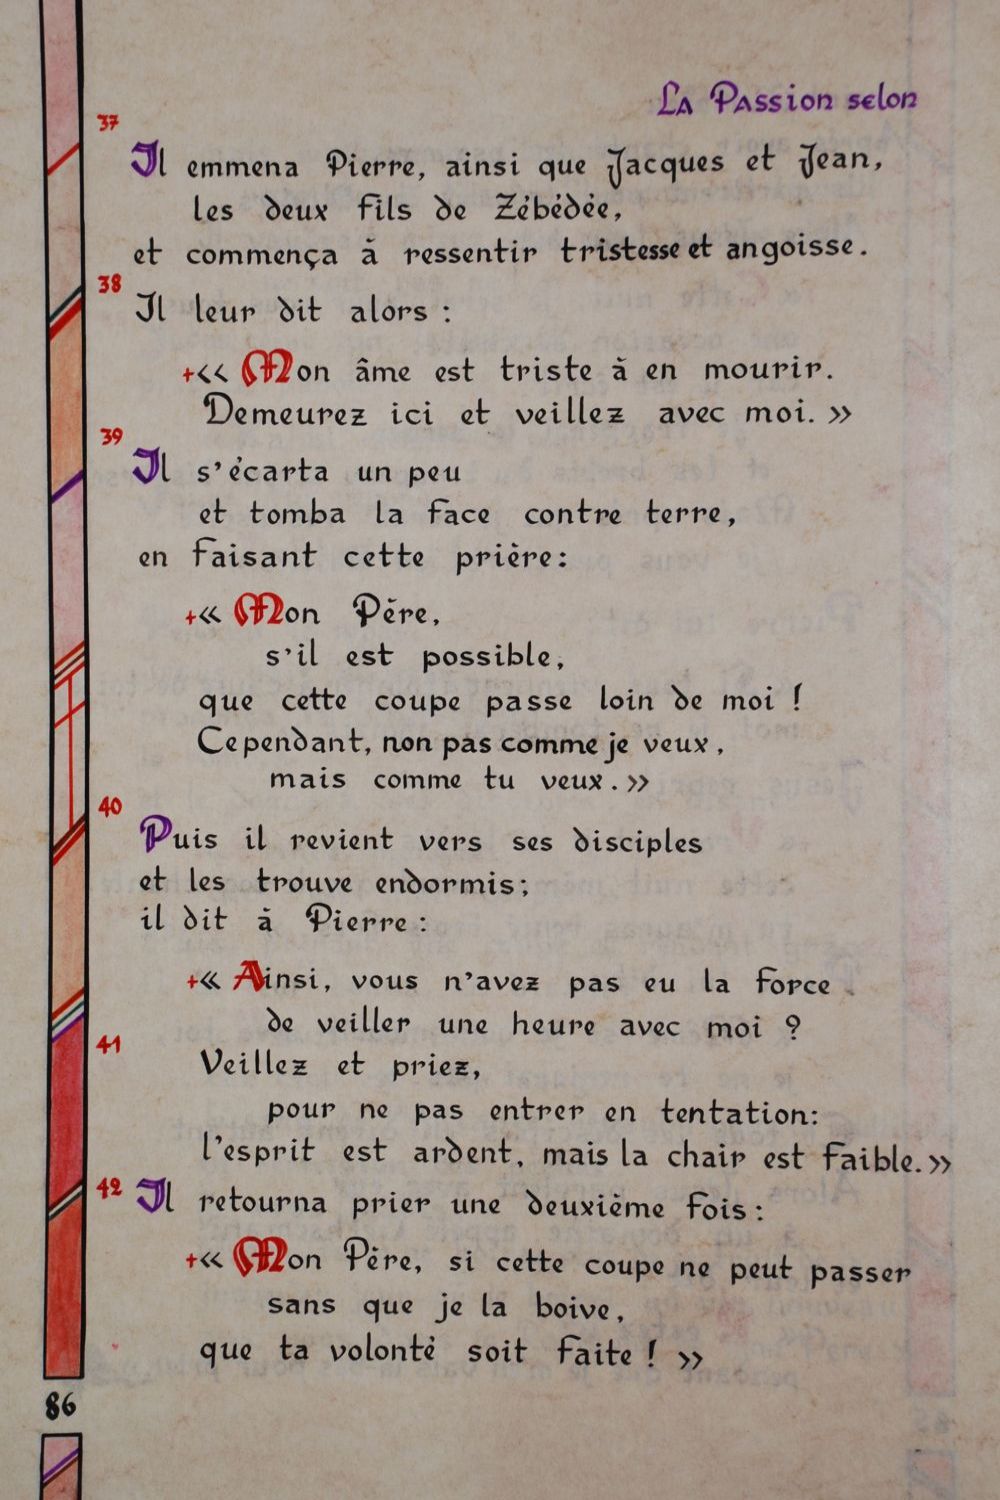 La Passion selon
37
Il emmena Pierre, ainsi que Jacques et Jean,
les deux fils de Zébédée,
et commença à ressentir tristesse et angoisse.
38
Il leur dit alors :
+<< Mon âme est triste à en mourir.
Demeurez ici et veillez avec moi. >>
39
Il s'écarta un peu
et tomba la face contre terre,
en faisant cette prière:
+<< Mon Père,
s'il est possible,
que cette coupe passe loin de moi !
Cependant, non pas comme je veux,
mais comme tu veux. >>
40
Puis il revient vers ses disciples
et les trouve endormis;
il dit à Pierre :
+<< Ainsi, vous n'avez pas eu la force
de veiller une heure avec moi ?
41
Veillez et priez,
pour ne pas entrer en tentation:
l'esprit est ardent, mais la chair est faible. >>
42 Il retourna prier une deuxième fois :
+<< Mon Père, si cette coupe ne peut passer
sans que je la boive,
que ta volonté soit faite ! >>
86